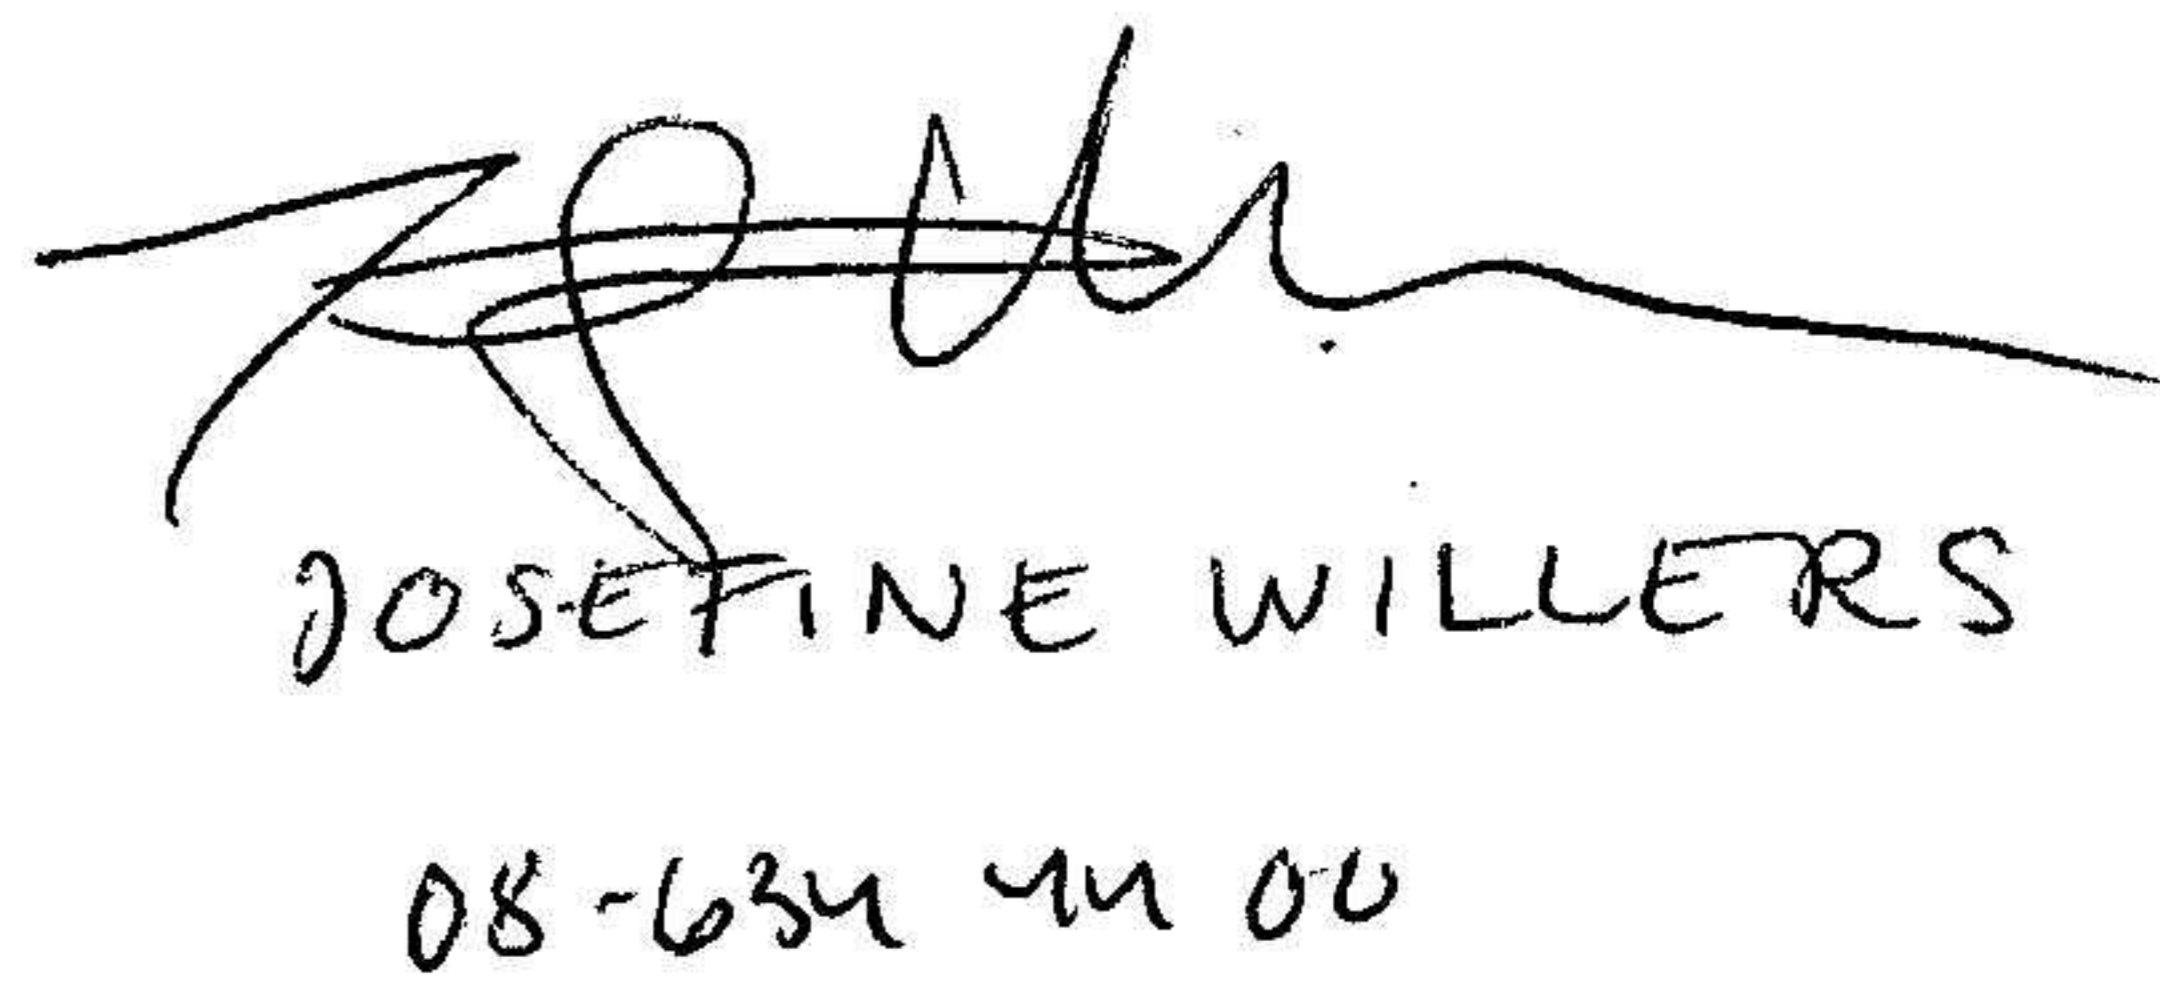 JOSEFINE WILLERS
08-634 44 00